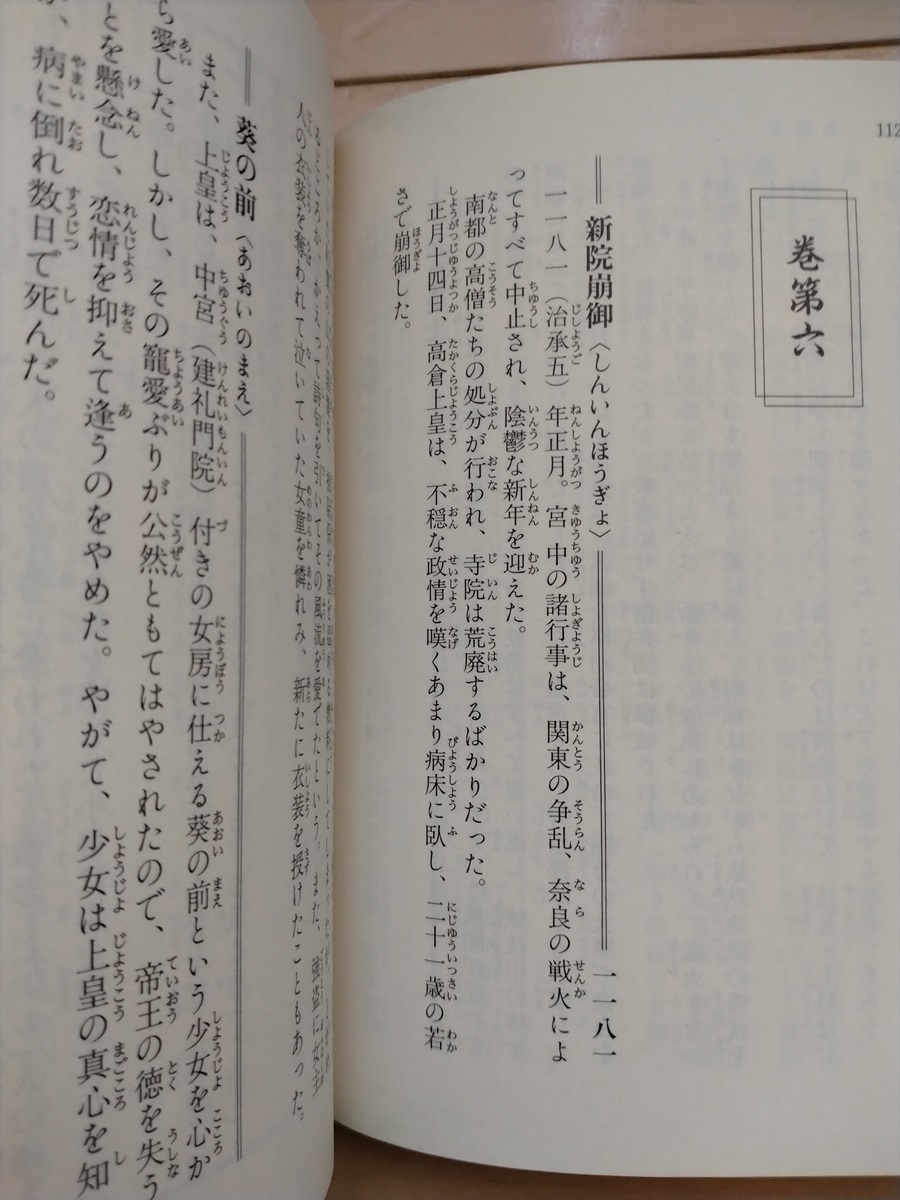 112
巻第六
新院崩御〈しんいんほうぎょ〉 一一八一
一一八一（治承五）年正月。宮中の諸行事は、関東の争乱、奈良の戦火によ
ってすべて中止され、陰鬱な新年を迎えた。
南都の高僧たちの処分が行われ、寺院は荒廃するばかりだった。
正月十四日、高倉上皇は、不穏な政情を嘆くあまり病床に臥し、二十一歳の若
さで崩御した。
るどころか、かえって詩句を引いてその風流を愛でたという。また、強盗に女主
人の衣装を奪われて泣いていた女童を憐れみ、新たに衣装を授けたこともあった。
葵の前〈あおいのまえ〉
また、上皇は、中宮（建礼門院）付きの女房に仕える葵の前という少女を心か
ら愛した。しかし、その寵愛ぶりが公然ともてはやされたので、帝王の徳を失う
とを懸念し、恋情を抑えて逢うのをやめた。やがて、少女は上皇の真心を知
病に倒れ数日で死んだ。